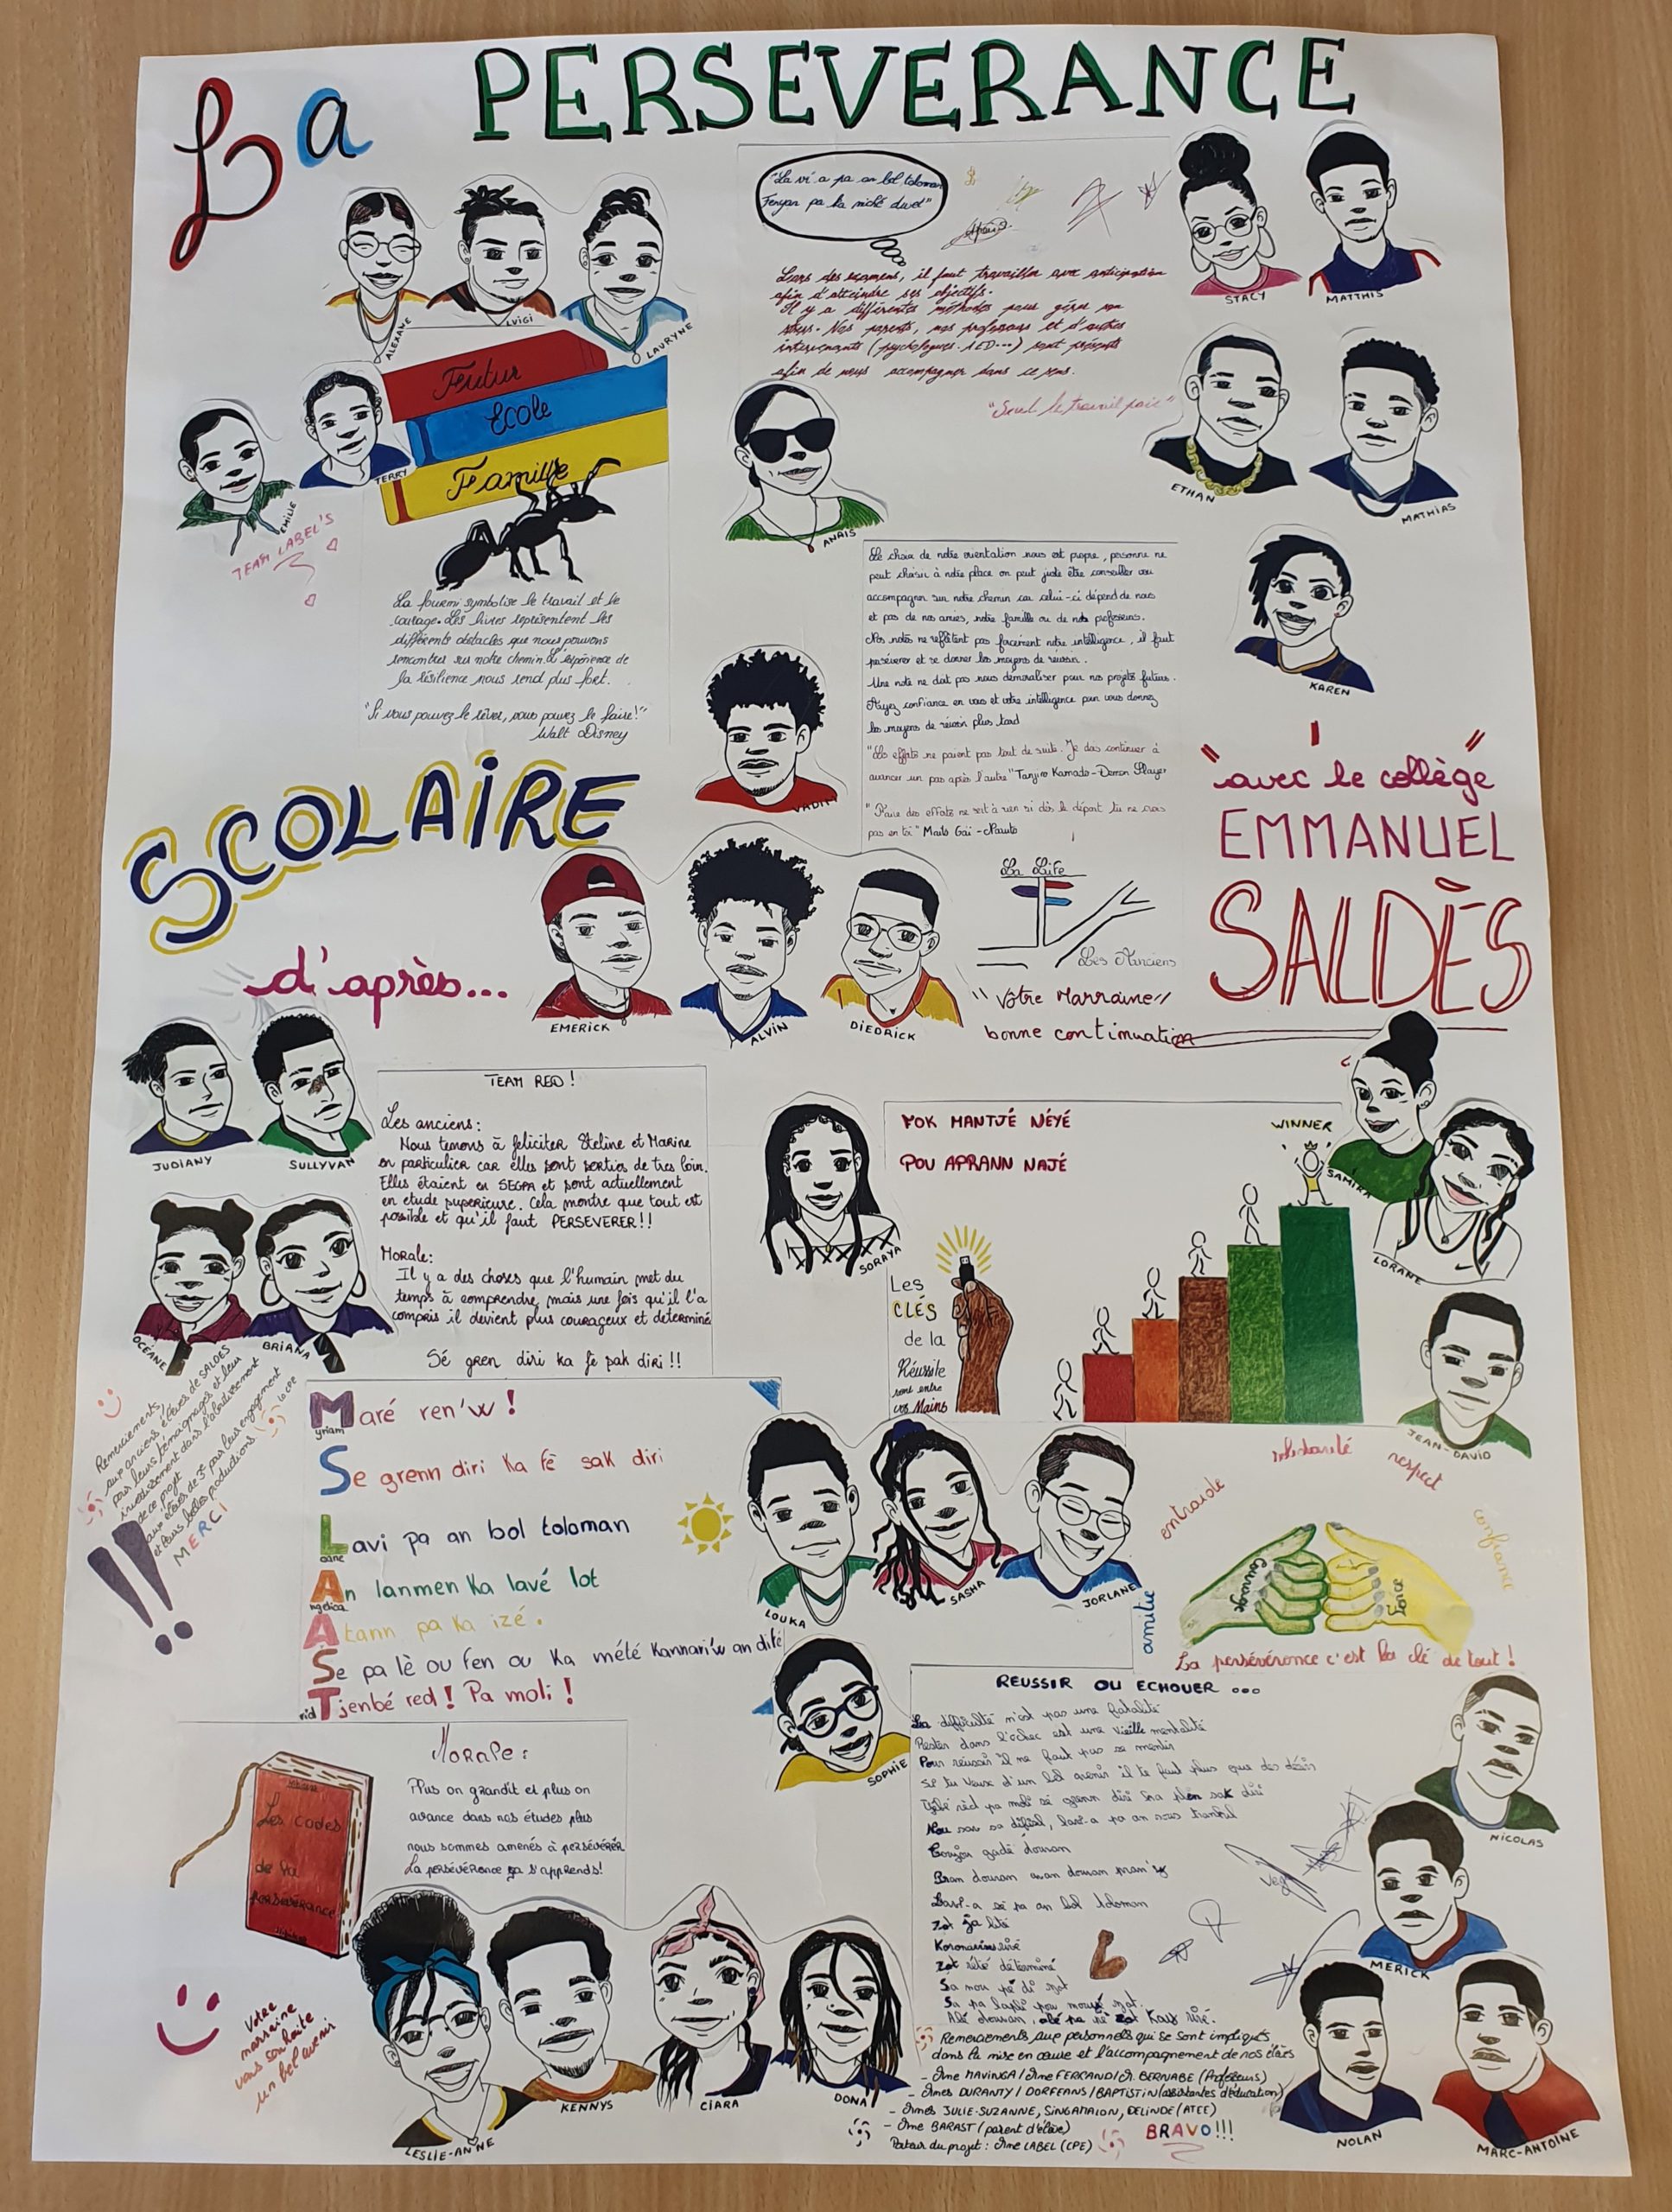 La PERSEVERANCE
"La vi a pa an bol toloman
Fenyan pa ka niché duvet"
Lors des examens, il faut travailler avec anticipation
afin d'atteindre ses objectifs.
Il y a différentes méthodes pour gérer son
stress. Nos parents, nos professeurs et d'autres
intervenants (psychologues. AED...) sont présents
afin de nous accompagner dans ce sens.
"Seul le travail paie"
STACY
MATTHIS
ALEXANE
LUIGI
LAURYNE
Futur
Ecole
Famille
TERRY
EMILIE
TEAM LABEL'S
ANAIS
ETHAN
MATHIAS
KAREN
La fourmi symbolise le travail et le
courage. Les livres représentent les
différents obstacles que nous pouvons
rencontrer sur notre chemin. L'expérience de
la résilience nous rend plus fort.
"Si vous pouvez le rêver, vous pouvez le faire!"
Walt Disney
Le choix de notre orientation nous est propre, personne ne
peut choisir à notre place on peut juste être conseiller ou
accompagner sur notre chemin car celui-ci dépend de nous
et pas de nos amies, notre famille ou de nos professeurs.
Nos notes ne reflètent pas forcement notre intelligence, il faut
persévérer et se donner les moyens de réussir.
Une note ne doit pas nous démoraliser pour nos projets futurs.
Ayez confiance en vous et votre intelligence pour vous donnez
les moyens de réussir plus tard
"Les efforts ne paient pas tout de suite. Je dois continuer à
avancer un pas après l'autre" Tanjiro Kamado - Demon Slayer
"Faire des efforts ne sert à rien si dès le départ tu ne crois
pas en toi" Maito Gai - Naruto
SCOLAIRE
d'après...
"avec le collège"
EMMANUEL
SALDÈS
EMERICK
ALVIN
DIEDRICK
La Life
Les Anciens
"Votre Marraine"
bonne continuation
JUDIANY
SULLYVAN
OCÉANE
BRIANA
TEAM RED!
Les anciens:
Nous tenons à féliciter Steline et Marine
en particulier car elles sont sorties de tres loin.
Elles étaient en SEGPA et sont actuellement
en etude superieure. Cela montre que tout est
possible et qu'il faut PERSEVERER!!
Morale:
Il y a des choses que l'humain met du
temps à comprendre, mais une fois qu'il l'a
compris il devient plus courageux et determiné
Sé gren diri ka fe pak diri !!
SORAYA
FOK MANTJÉ NÉYÉ
POU APRANN NAJÉ
WINNER
Les
CLÉS
de la
Réussite
sont entre
vos Mains
SAMIRA
LORANE
JEAN-DAVID
Remerciements,
aux anciens élèves de SALDES
pour leurs témoignages et leur
investissement dans l'aboutissement
de ce projet
aux élèves de 3e pour leur engagement
et leurs belles productions
la CPE
MERCI
!!
Maré ren'w !
yriam
Se grenn diri Ka fè sak diri
Lavi pa an bol toloman
An lanmen Ka lavé lot
ngelica
Atann pa ka izé.
Se pa lè ou fen ou Ka mété Kannari'w an difé
Tjenbé red ! Pa moli !
LOUKA
SASHA
JORLANE
SOPHIE
entraide
solidarité
respect
confiance
amitié
Courage
Force
La persévérance c'est la clé de tout !
Morale:
Plus on grandit et plus on
avance dans nos études plus
nous sommes amenés à persévérér
La persévérance ça s'apprends!
Les codes
de la
persévérance
REUSSIR OU ECHOUER ...
La difficulté n'est pas une fatalité
Rester dans l'échec est une vieille mentalité
Pour réussir il ne faut pas se mentir
Si tu veux d'un bel avenir il te faut plus que des désirs
Toujou gadé douvan
Lavi-a sé pa an bol toloman
zot ja lité
zot rété déterminé
Sa nou pé di zot
NICOLAS
MERICK
NOLAN
MARC-ANTOINE
Votre
marraine
vous souhaite
un bel avenir
LESLIE-ANNE
KENNYS
CIARA
DONA
Remerciements aux personnels qui se sont impliqués
dans la mise en œuvre et l'accompagnement de nos élèves
- Mme MAVINGA / Mme FERRAND / M. BERNABE (Professeurs)
- Mmes DURANTY / DORFEANS / BAPTISTIN (assistantes d'éducation)
- Mmes JULIE-SUZANNE, SINGAMALON, DELINDE (ATEE)
- Mme BARAST (parent d'élève)
Porteur du projet : Mme LABEL (CPE)
BRAVO!!!